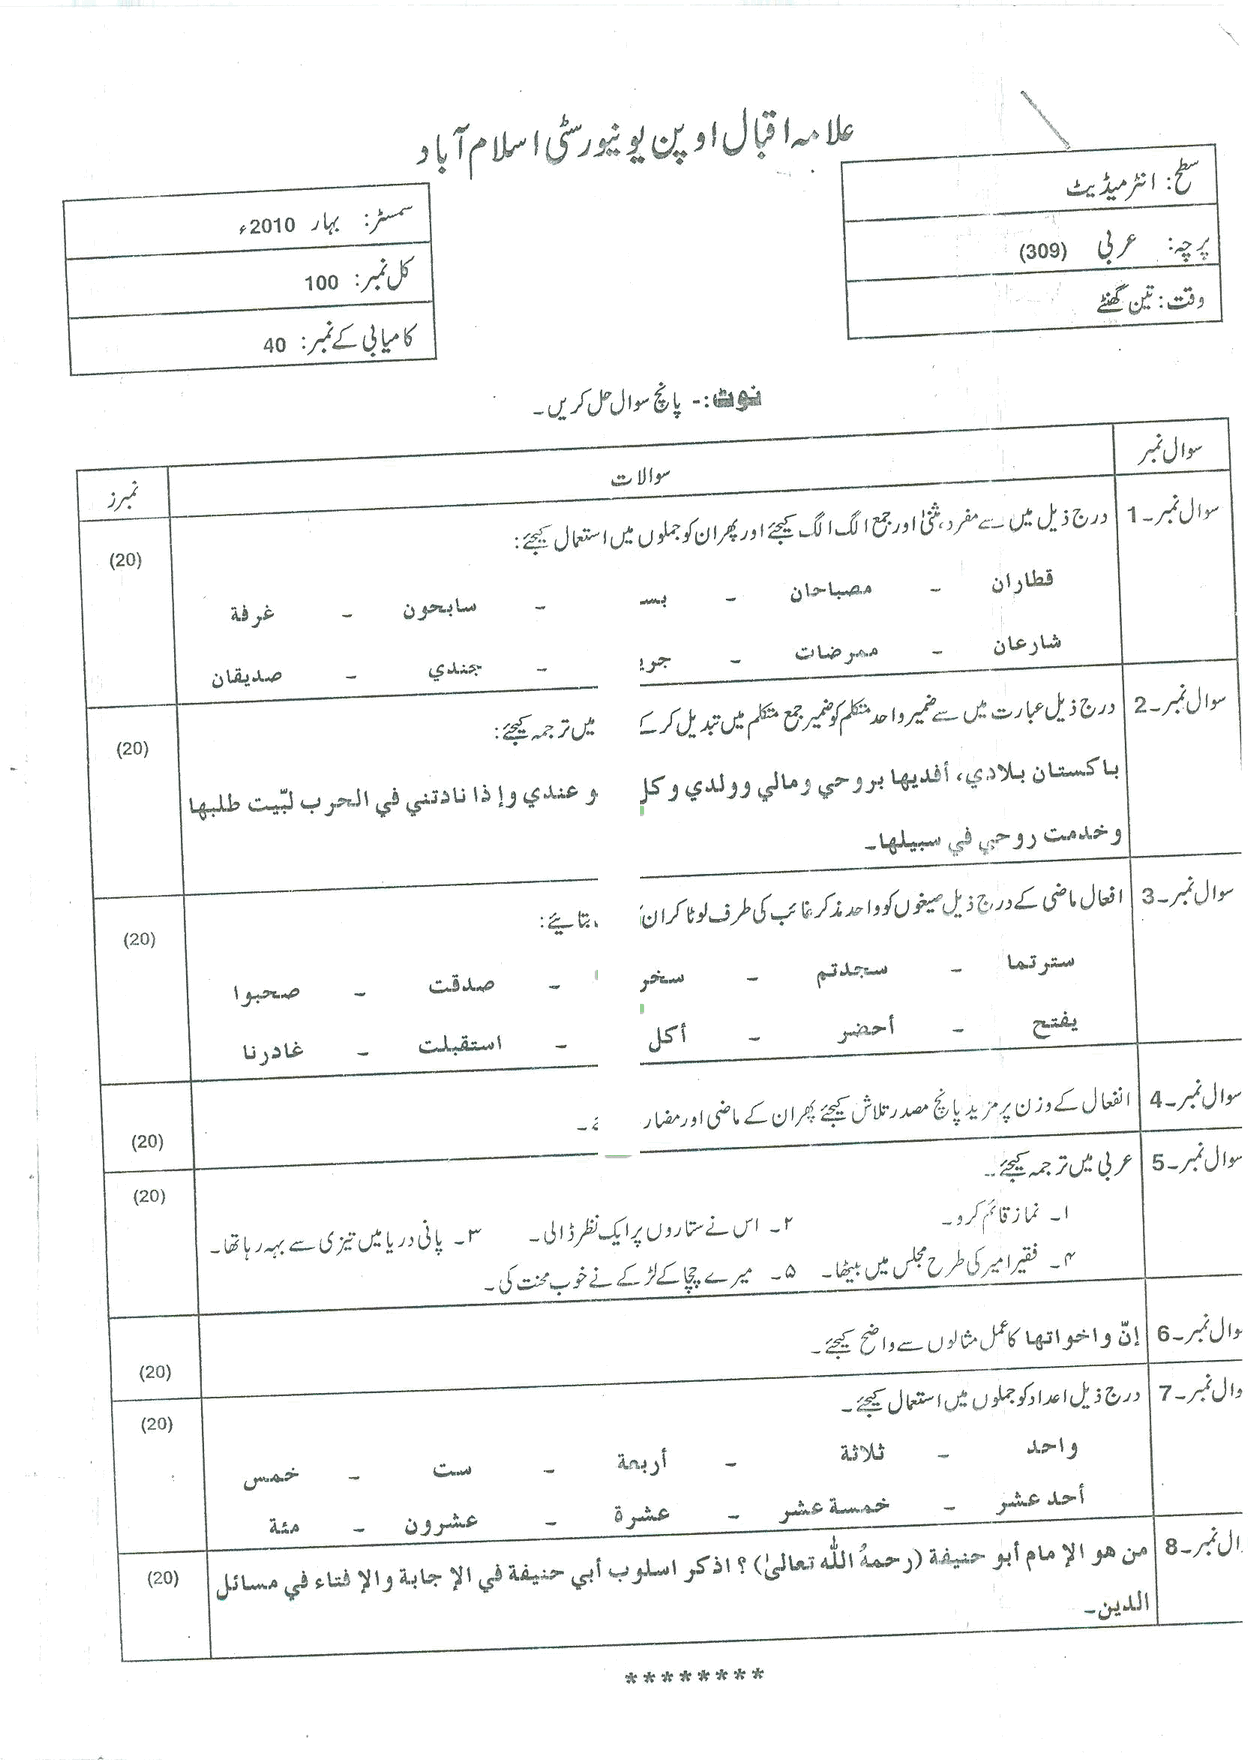 علامہ اقبال اوپن یونیورسٹی اسلام آباد
سطح: انٹرمیڈیٹ
پرچہ: عربی (309)
وقت: تین گھنٹے
سمسٹر: بہار 2010ء
کل نمبر: 100
کامیابی کے نمبر: 40
نوٹ:- پانچ سوال حل کریں۔
سوال نمبر سوالات نمبرز
سوال نمبر۔1 درج ذیل میں سے مفرد، مثنیٰ اور جمع الگ الگ کیجئے اور پھر ان کو جملوں میں استعمال کیجئے: (20)
قطاران - مصباحان - - سابحون - غرفة
شارعان - ممرضات - - جندي - صديقان
سوال نمبر۔2 درج ذیل عبارت میں سے ضمیر واحد متکلم کو ضمیر جمع متکلم میں تبدیل کر کے میں ترجمہ کیجئے: (20)
باكستان بلادي، أفديها بروحي ومالي وولدي وكل و عندي وإذا نادتني في الحرب لبّيت طلبها
وخدمت روحي في سبيلها۔
سوال نمبر۔3 افعال ماضی کے درج ذیل صیغوں کو واحد مذکر غائب کی طرف لوٹا کر ان بتایئے: (20)
سترتما - سجدتم - - صدقت - صحبوا
يفتح - أحضر - أكل - استقبلت - غادرنا
سوال نمبر۔4 انفعال کے وزن پر مزید پانچ مصدر تلاش کیجئے پھر ان کے ماضی اور (20)
سوال نمبر۔5 عربی میں ترجمہ کیجئے۔ (20)
۱۔ نماز قائم کرو۔ ۲۔ اس نے ستاروں پر ایک نظر ڈالی۔ ۳۔ پانی دریا میں تیزی سے بہہ رہا تھا۔
۴۔ فقیر امیر کی طرح مجلس میں بیٹھا۔ ۵۔ میرے چچا کے لڑکے نے خوب محنت کی۔
وال نمبر۔6 إنّ واخواتها کا عمل مثالوں سے واضح کیجئے۔ (20)
وال نمبر۔7 درج ذیل اعداد کو جملوں میں استعمال کیجئے۔ (20)
واحد - ثلاثة - أربعة - ست - خمس
أحد عشر - خمسة عشر - عشرة - عشرون - مئة
ال نمبر۔8 من هو الإمام أبو حنيفة (رحمهُ الله تعالىٰ)؟ اذكر اسلوب أبي حنيفة في الإجابة والإفتاء في مسائل (20)
الدين۔
********